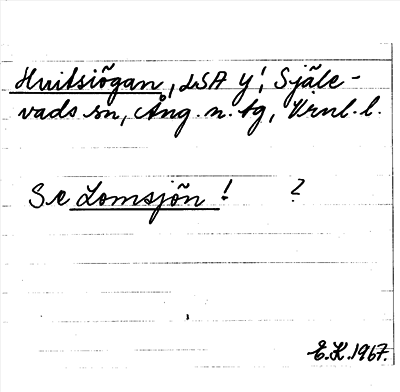 Huitsiögan, LSA y!, Själe-
vads sn, Ång. n. tg, Vrnl. l.
Se Lomsjön! ?
E.K. 1967.